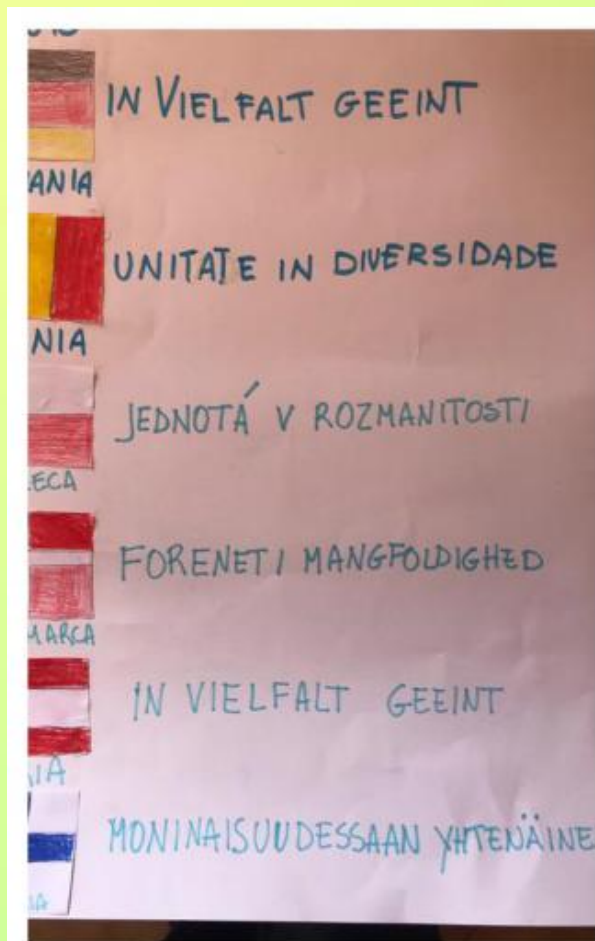 IN VIELFALT GEEINT
ANIA
UNITATE IN DIVERSIDADE
NIA
JEDNOTÁ V ROZMANITOSTI
ECA
FORENET I MANGFOLDIGHED
MARCA
IN VIELFALT GEEINT
IA
MONINAISUUDESSAAN YHTENÄINE